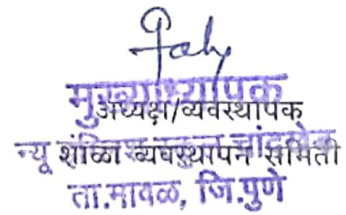 मुख्याध्यापक
अध्यक्ष/व्यवस्थापक
न्यू
शाळा व्यवस्थापन समिती
ता.मावळ, जि.पुणे